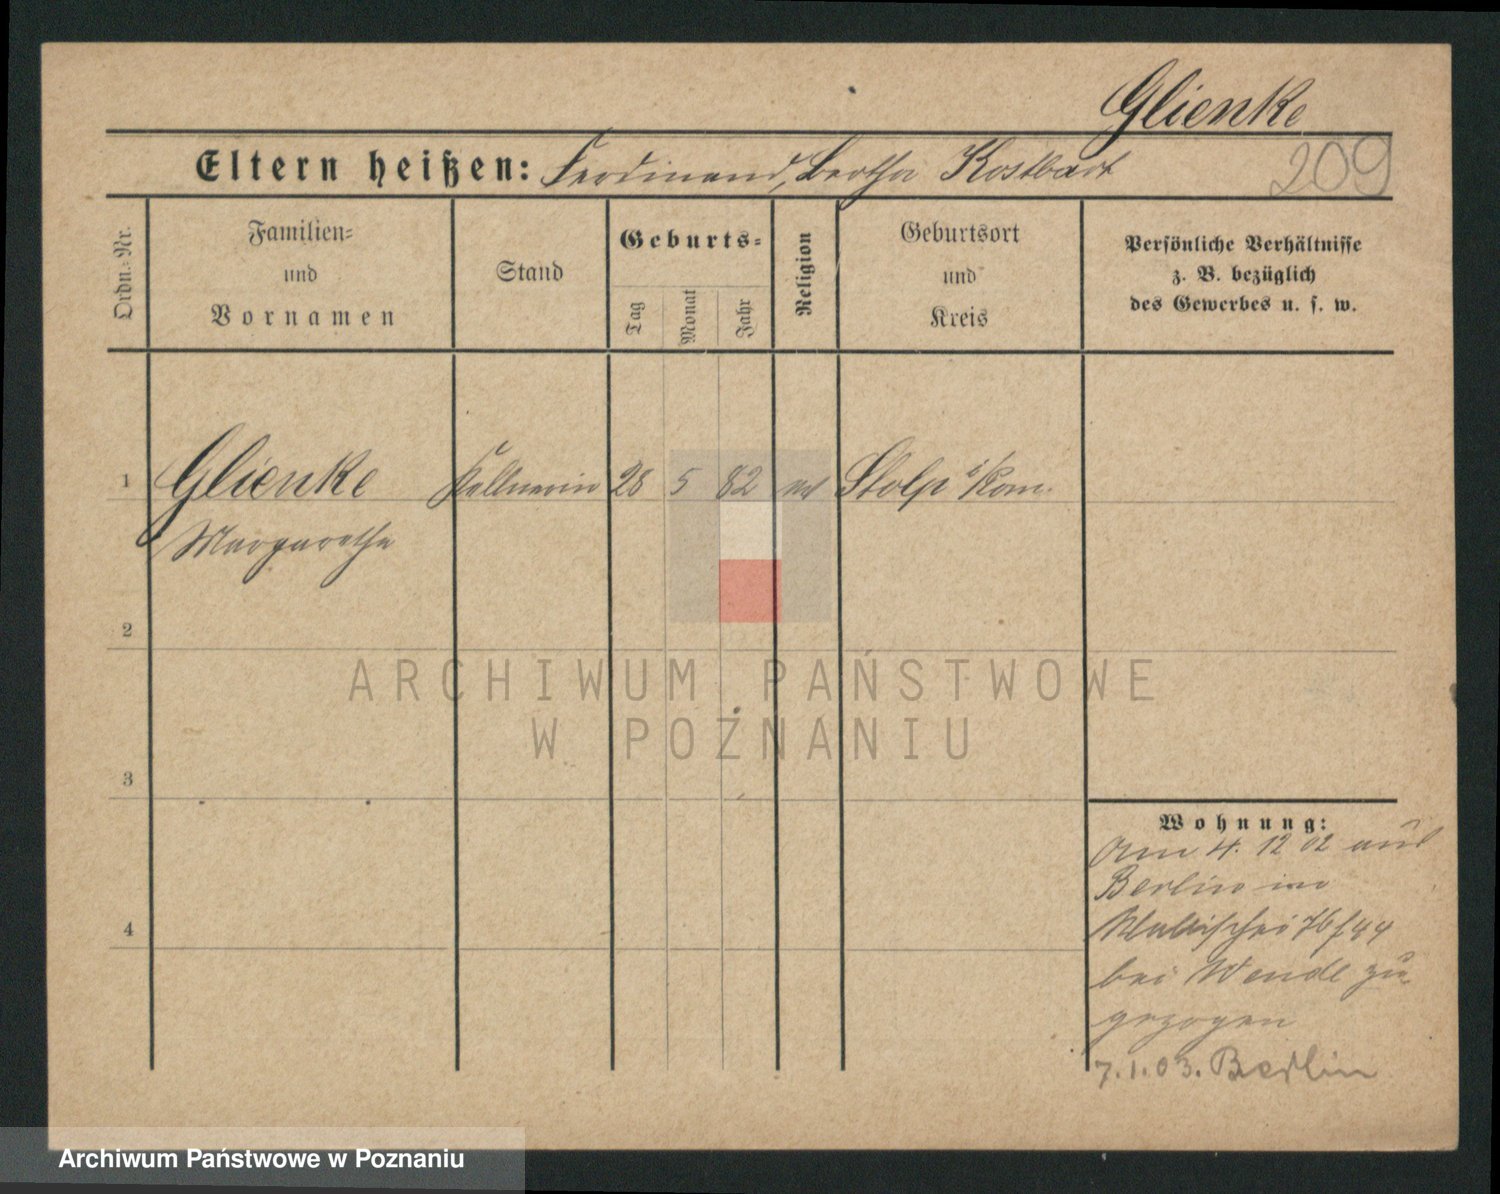 Glienke
Eltern heißen: Ferdinand, Bertha Kostbart
209
Ordn.-Nr.
Familien-
und
Vornamen
Stand
Geburts-
Tag
Monat
Jahr
Religion
Geburtsort
und
Kreis
Persönliche Verhältnisse
z. B. bezüglich
des Gewerbes u. s. w.
1 Glienke Kellnerin 28 5 82 ev Stolp i/Pom.
Margarethe
2
ARCHIWUM PAŃSTWOWE
W POZNANIU
3
4
Wohnung:
Am 4. 12 02 aus
Berlin in
Wallischei
bei Wendl zu
gezogen
7.1.03. Berlin
Archiwum Państwowe w Poznaniu